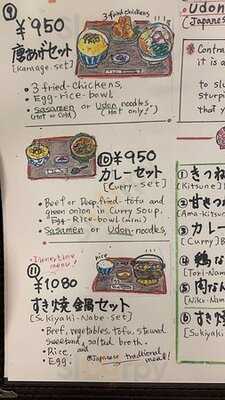 ⑨ ¥950
3 fried chickens
唐あげセット
[Karaage-set]
• 3 fried-chickens,
• Egg-rice-bowl.
• Sasamen or Udon noodles,
(Hot or Cold) (Hot only!)
⑩ ¥950
カレーセット
[Curry-set]
• Beef or Deep-fried-tofu and
green onion in curry soup.
• Egg-Rice-bowl (mini)
• Sasamen or Udon-noodles,
Dinnertime
menu!
⑪ ¥1080
rice
すき焼鍋セット
[Sukiyaki-Nabe-set]
• Beef, vegetables, tofu, stewed
Sweet and salted broth.
• Rice, and
• Egg. Japanese traditional
meal!
Udon
(Japanes
• Contra
it is a
to sl
Sturp
that y
① きつね
[Kitsune]
② 甘きつ
[Ama-kitsu
③ カレー
[Curry]
④ 鶏な
[Tori-Nam
⑤ 肉なん
[Niku-Nam
⑥ すき焼
[Sukiyaki